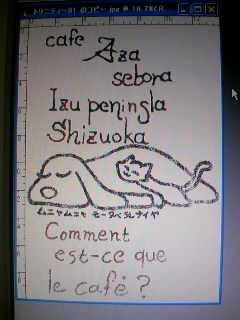 トリニティー01 のコピー.jpg @ 16.7%(R
cafe
Aza
sebora
Izu peningla
Shizuoka
ムニャムニャ モータベラレナイヤ
Comment
est-ce que
le café ?